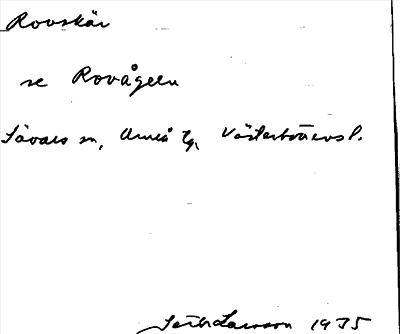 Rovskär
se Rovågern
Sävars sn, Umeå tg, Västerbottens l.
Larsson 1935